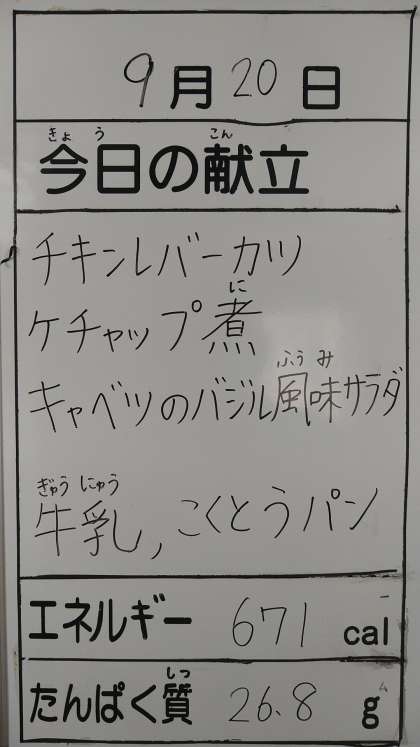 9月20日
きょう こん
今日の献立
チキンレバーカツ
に
ケチャップ煮
ふうみ
キャベツのバジル風味サラダ
ぎゅうにゅう
牛乳, こくとうパン
エネルギー 671 cal
しつ
たんぱく質 26.8 g